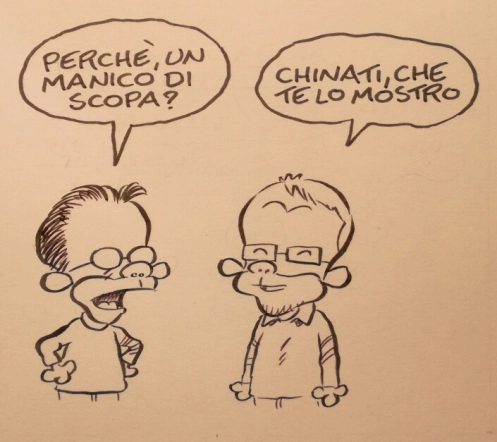 PERCHÈ, UN
MANICO DI
SCOPA?
CHINATI, CHE
TE LO MOSTRO